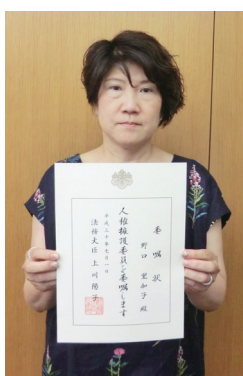 委嘱状
野口 里和子 殿
人権擁護委員を委嘱します
平成三十年七月一日
法務大臣 上川陽子